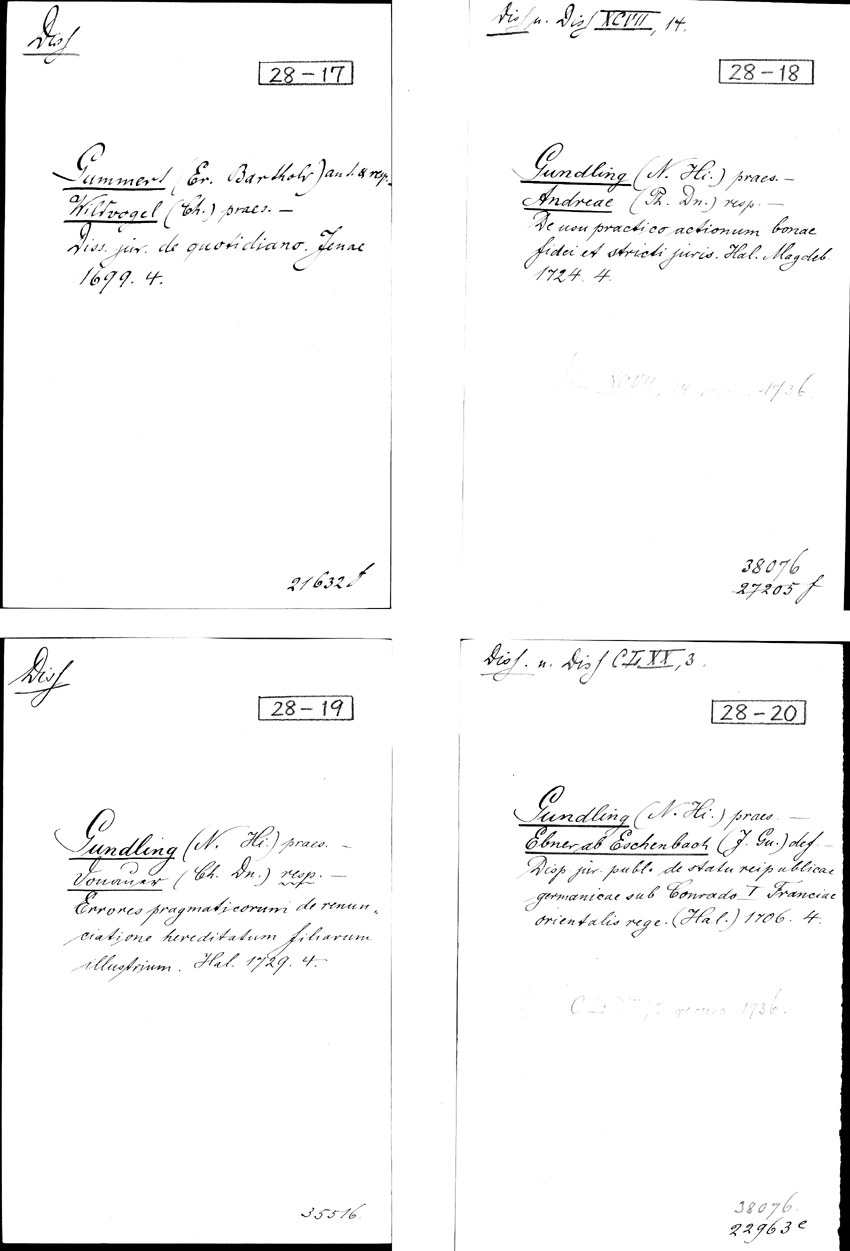 Diss
28-17
Gummert (Er. Bartholr) aut. & resp.
Wildvogel (Ch.) praes. —
Diss. jur. de quotidiano. Jenae
1699. 4.
21632 f
Diss u. Diss XCVII, 14.
28-18
Gundling (N. Hi.) praes. —
Andreae (Th. Dn.) resp. —
De usu practico actionum bonae
fidei et stricti juris. Hal. Magdeb.
1724. 4.
XCVII, 1736.
38076
27205 f
Diss
28-19
Gundling (N. Hi.) praes. —
Vonauer (Ch. Dn.) resp. —
Errores pragmaticorum de renun„
ciatione hereditatum filiarum
illustrium. Hal. 1729. 4.
35516.
Diss. u. Diss CLXX, 3.
28-20
Gundling (N. Hi.) praes. —
Ebner ab Eschenbach (J. Gu.) def. —
Disp jur. publ. de statu reipublicae
germanicae sub Conrado I Franciae
orientalis rege. (Hal.) 1706. 4.
1736.
38076.
22963 e